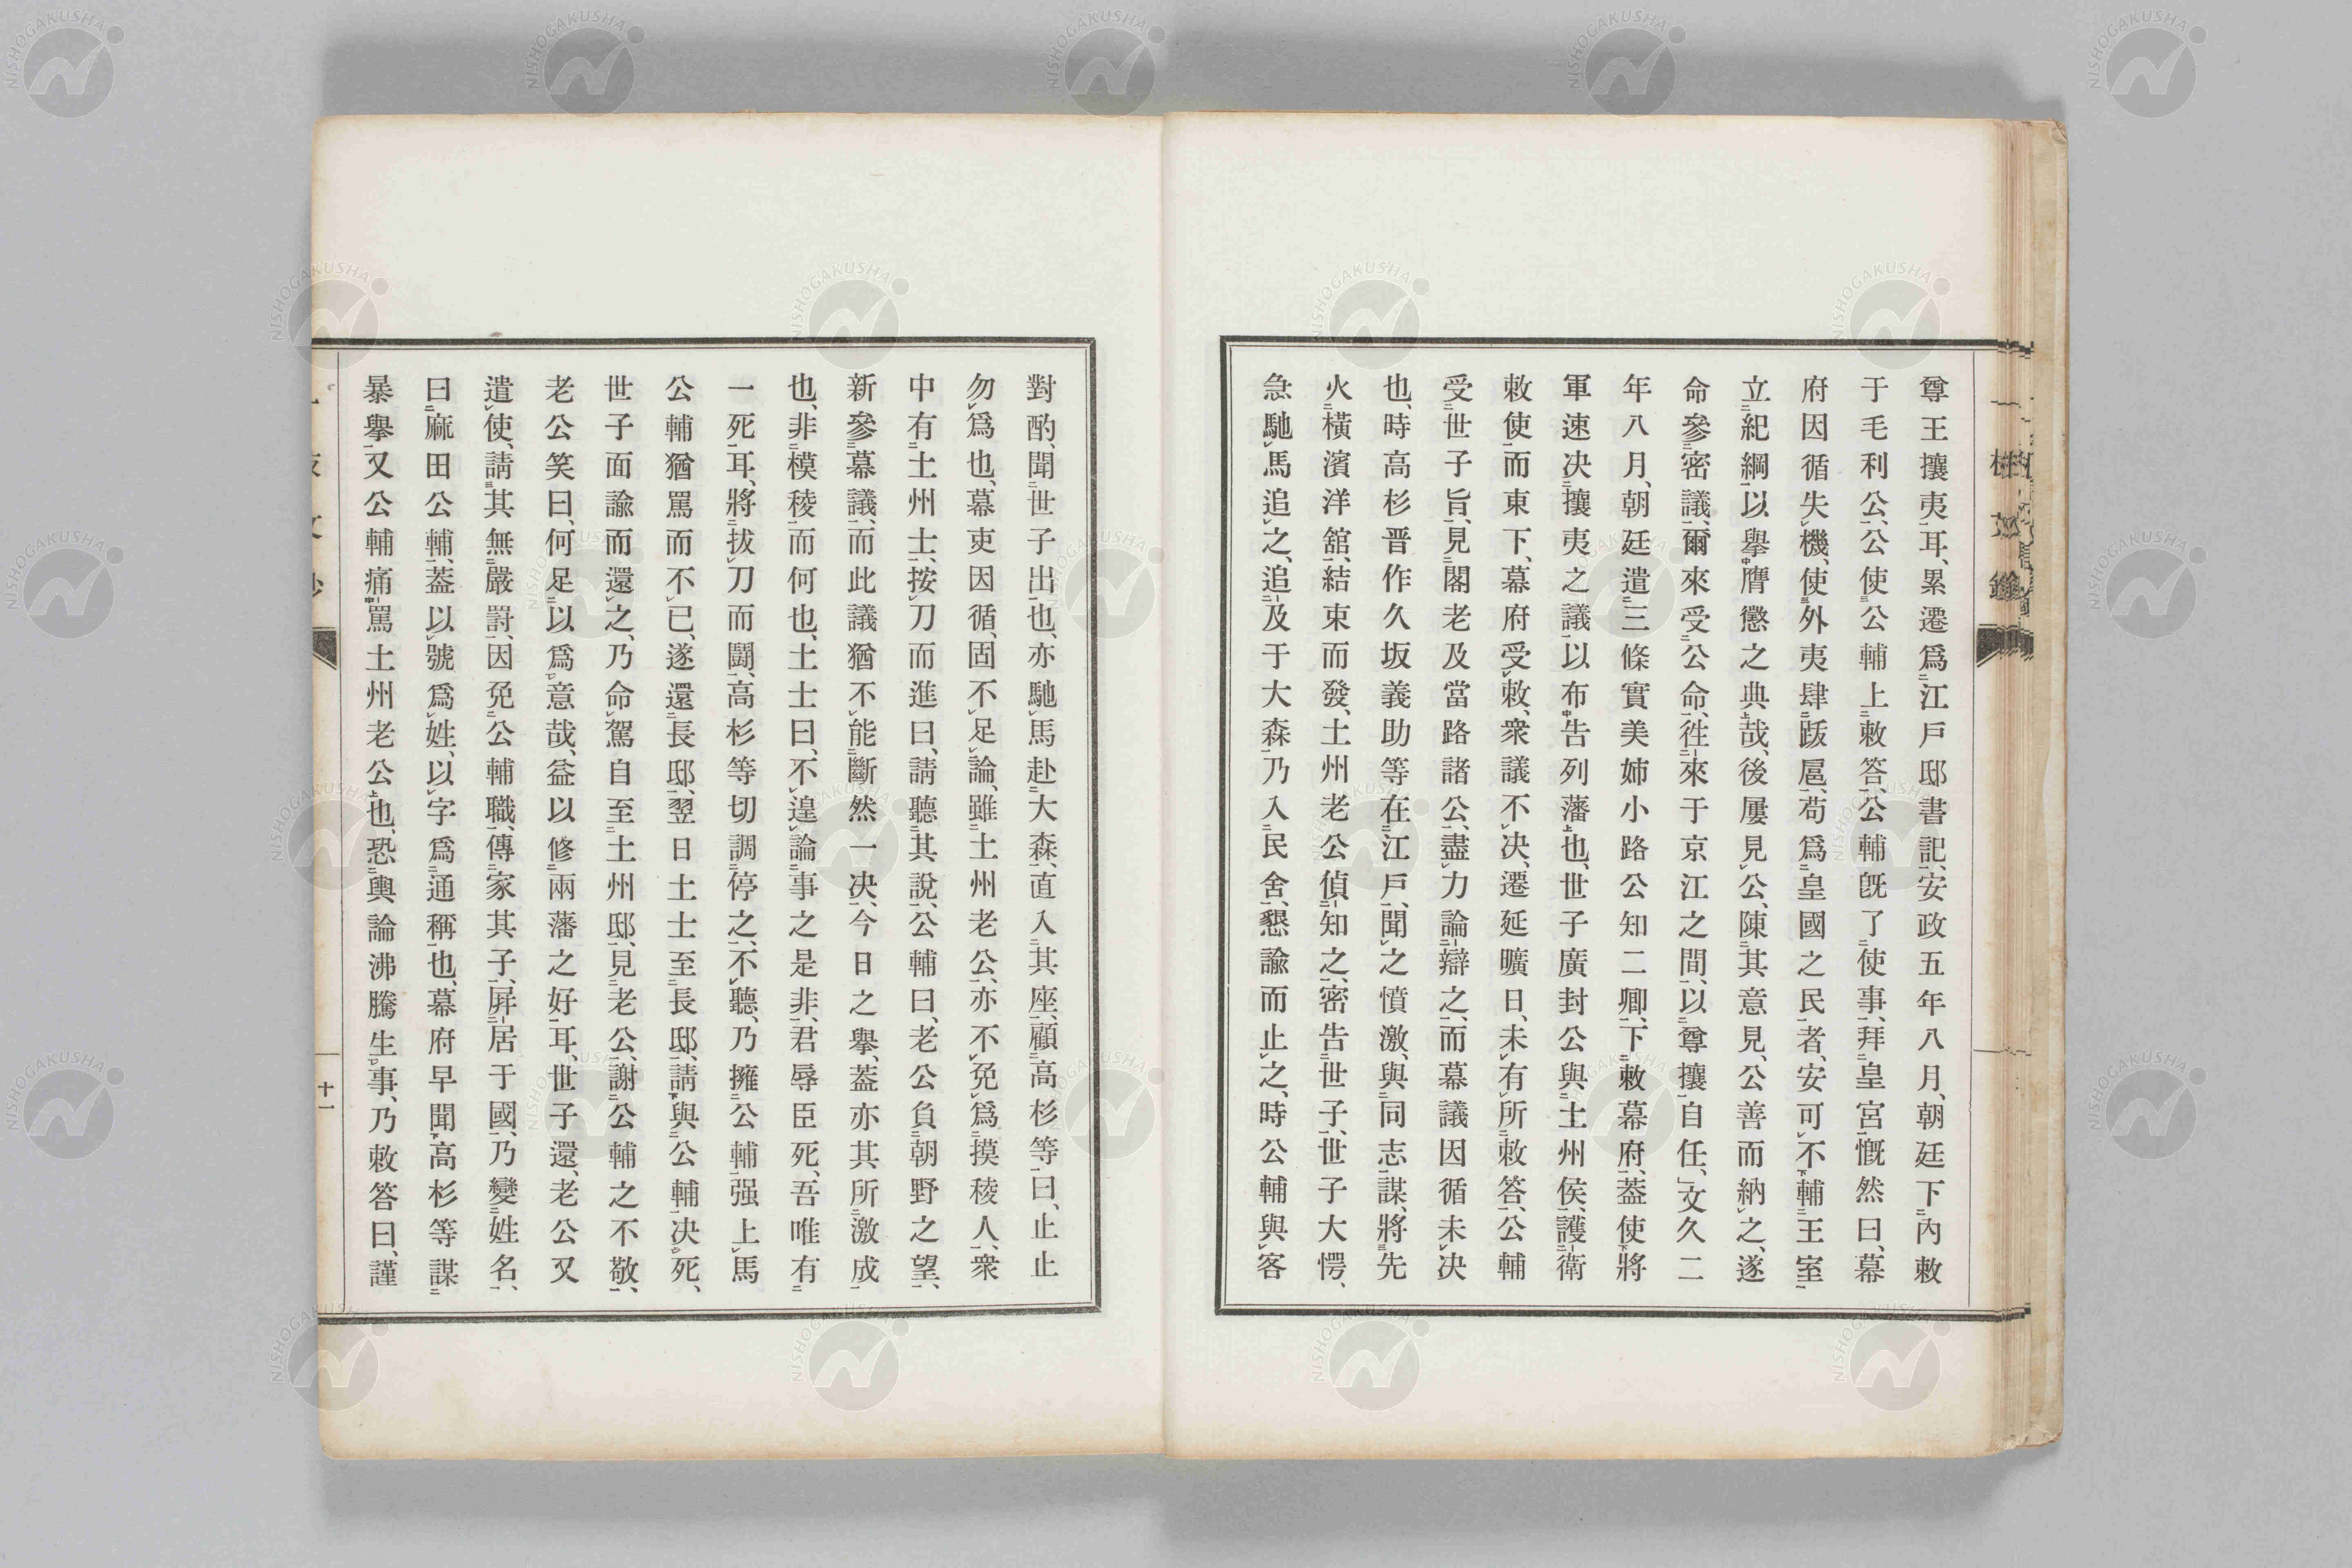 尊王攘夷耳、累遷爲江戶邸書記、安政五年八月、朝廷下內敕
于毛利公、公使公輔上敕答、公輔旣了使事、拜皇宮慨然曰、幕
府因循失機、使外夷肆跋扈、苟爲皇國之民者、安可不輔王室
立紀綱以舉膺懲之典哉、後屢見公、陳其意見、公善而納之、遂
命參密議、爾來受公命、徃來于京江之間、以尊攘自任、文久二
年八月、朝廷遣三條實美姉小路公知二卿、下敕幕府、葢使將
軍速决攘夷之議以布告列藩也、世子廣封公與土州侯、護衛
敕使而東下、幕府受敕、衆議不决、遷延曠日、未有所敕答、公輔
受世子旨、見閣老及當路諸公、盡力論辯之、而幕議因循未决
也、時高杉晋作久坂義助等在江戶、聞之憤激、與同志謀、將先
火橫濱洋舘、結束而發、土州老公偵知之、密告世子、世子大愕、
急馳馬追之、追及于大森、乃入民舍、懇諭而止之、時公輔與客
對酌、聞世子出也、亦馳馬赴大森、直入其座、顧高杉等曰、止止
勿爲也、幕吏因循、固不足論、雖土州老公、亦不免爲摸稜人、衆
中有土州士、按刀而進曰、請聽其說、公輔曰、老公負朝野之望、
新參幕議、而此議猶不能斷然一决、今日之舉、葢亦其所激成
也、非模稜而何也、土士曰、不遑論事之是非、君辱臣死、吾唯有
一死耳、將拔刀而鬪、高杉等切調停之、不聽、乃擁公輔强上馬
公輔猶罵而不已、遂還長邸、翌日土士至長邸、請與公輔决死、
世子面諭而還之、乃命駕自至土州邸、見老公、謝公輔之不敬、
老公笑曰、何足以爲意哉、益以修兩藩之好耳、世子還、老公又
遣使、請其無嚴罸、因免公輔職、傳家其子、屛居于國、乃變姓名、
曰麻田公輔、葢以號爲姓、以字爲通稱也、幕府早聞高杉等謀
暴舉、又公輔痛罵土州老公也、恐輿論沸騰生事、乃敕答曰、謹
十一